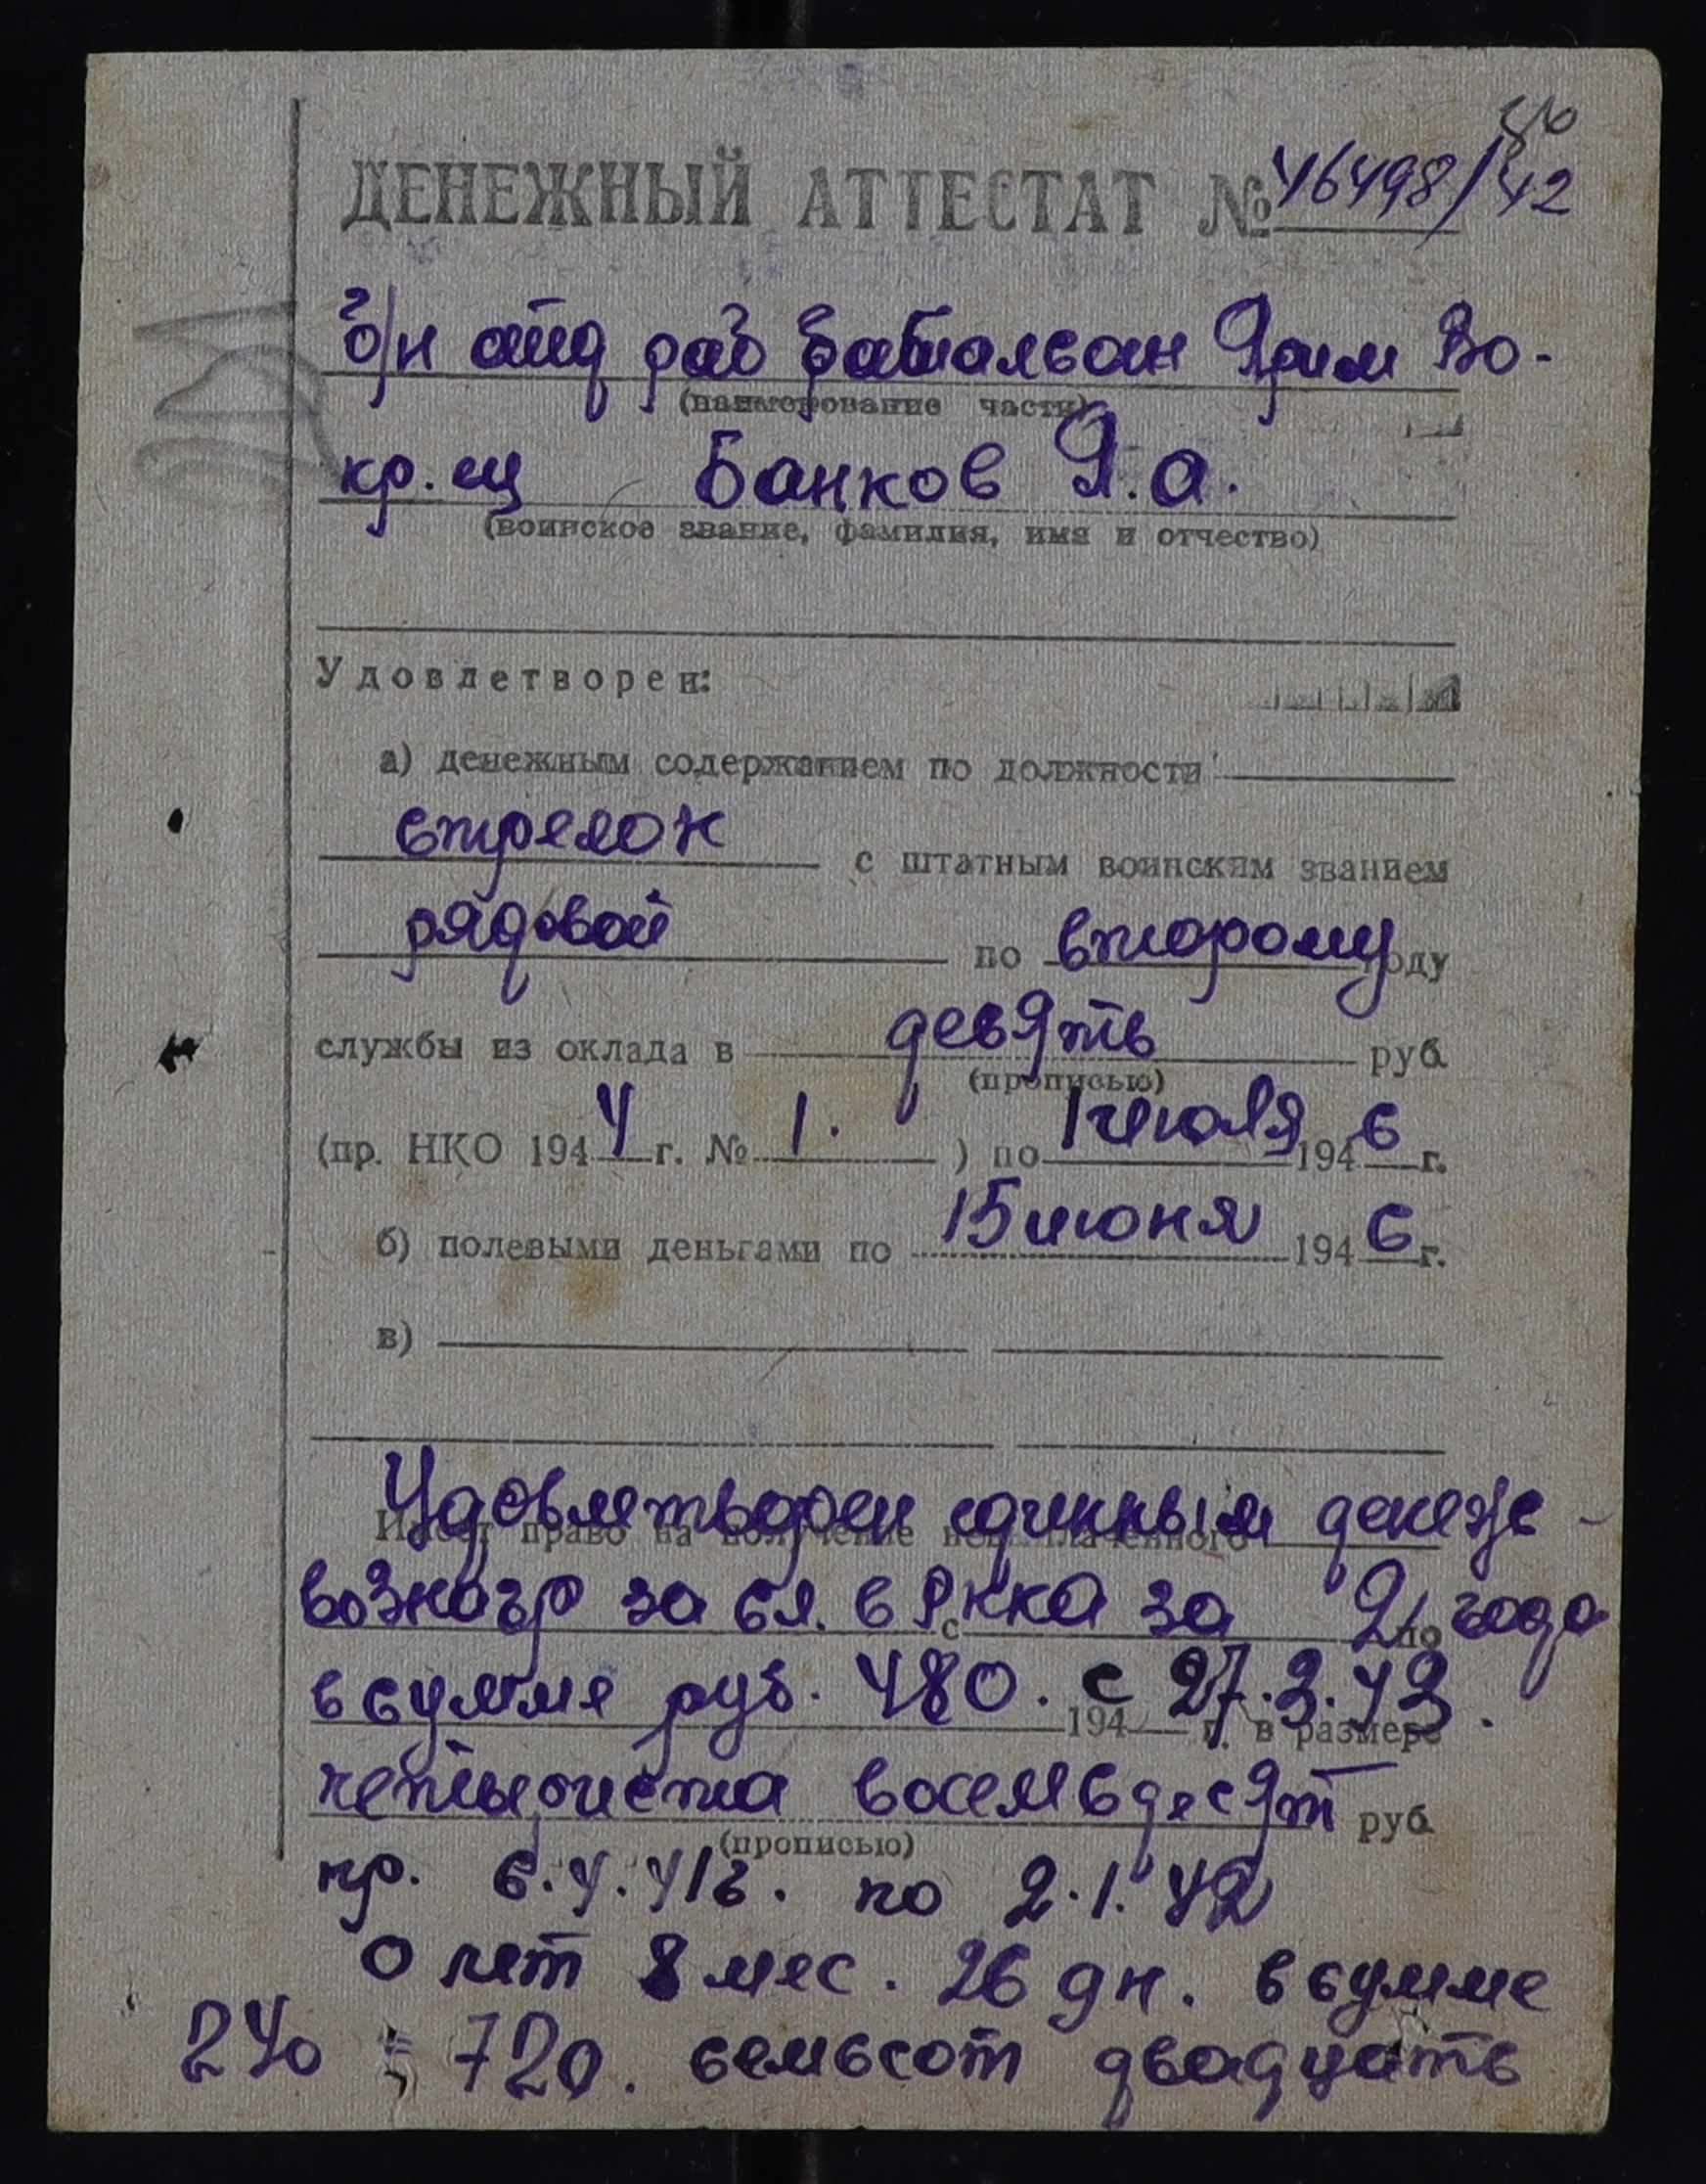 ДЕНЕЖНЫЙ АТТЕСТАТ № 46498/42
отд раб батальон Прим Во-
(наименование части)
кр. ец Банков Я. а.
(воинское звание, фамилия, имя и отчество)
Удовлетворен:
а) денежным содержанием по должности
стрелок с штатным воинским званием
рядовой по второму году
службы из оклада в девять руб.
(прописью)
(пр. НКО 1944 г. № 1. ) по 1 июля 1946 г.
б) полевыми деньгами по 15 июня 1946 г.
в)
Удовлетворен единным денеж-
Имеет право на получение невыплаченного
вознагр за сл. в РККА за 2 года
с по
в сумме руб. 480. с 27.3.43.
194 г. в размере
четыриста восемьдесят руб.
(прописью)
пр. 6.4.41г. по 2.1.42
0 лет 8 мес. 26 дн. в сумме
240 = 720. семьсот двадцать